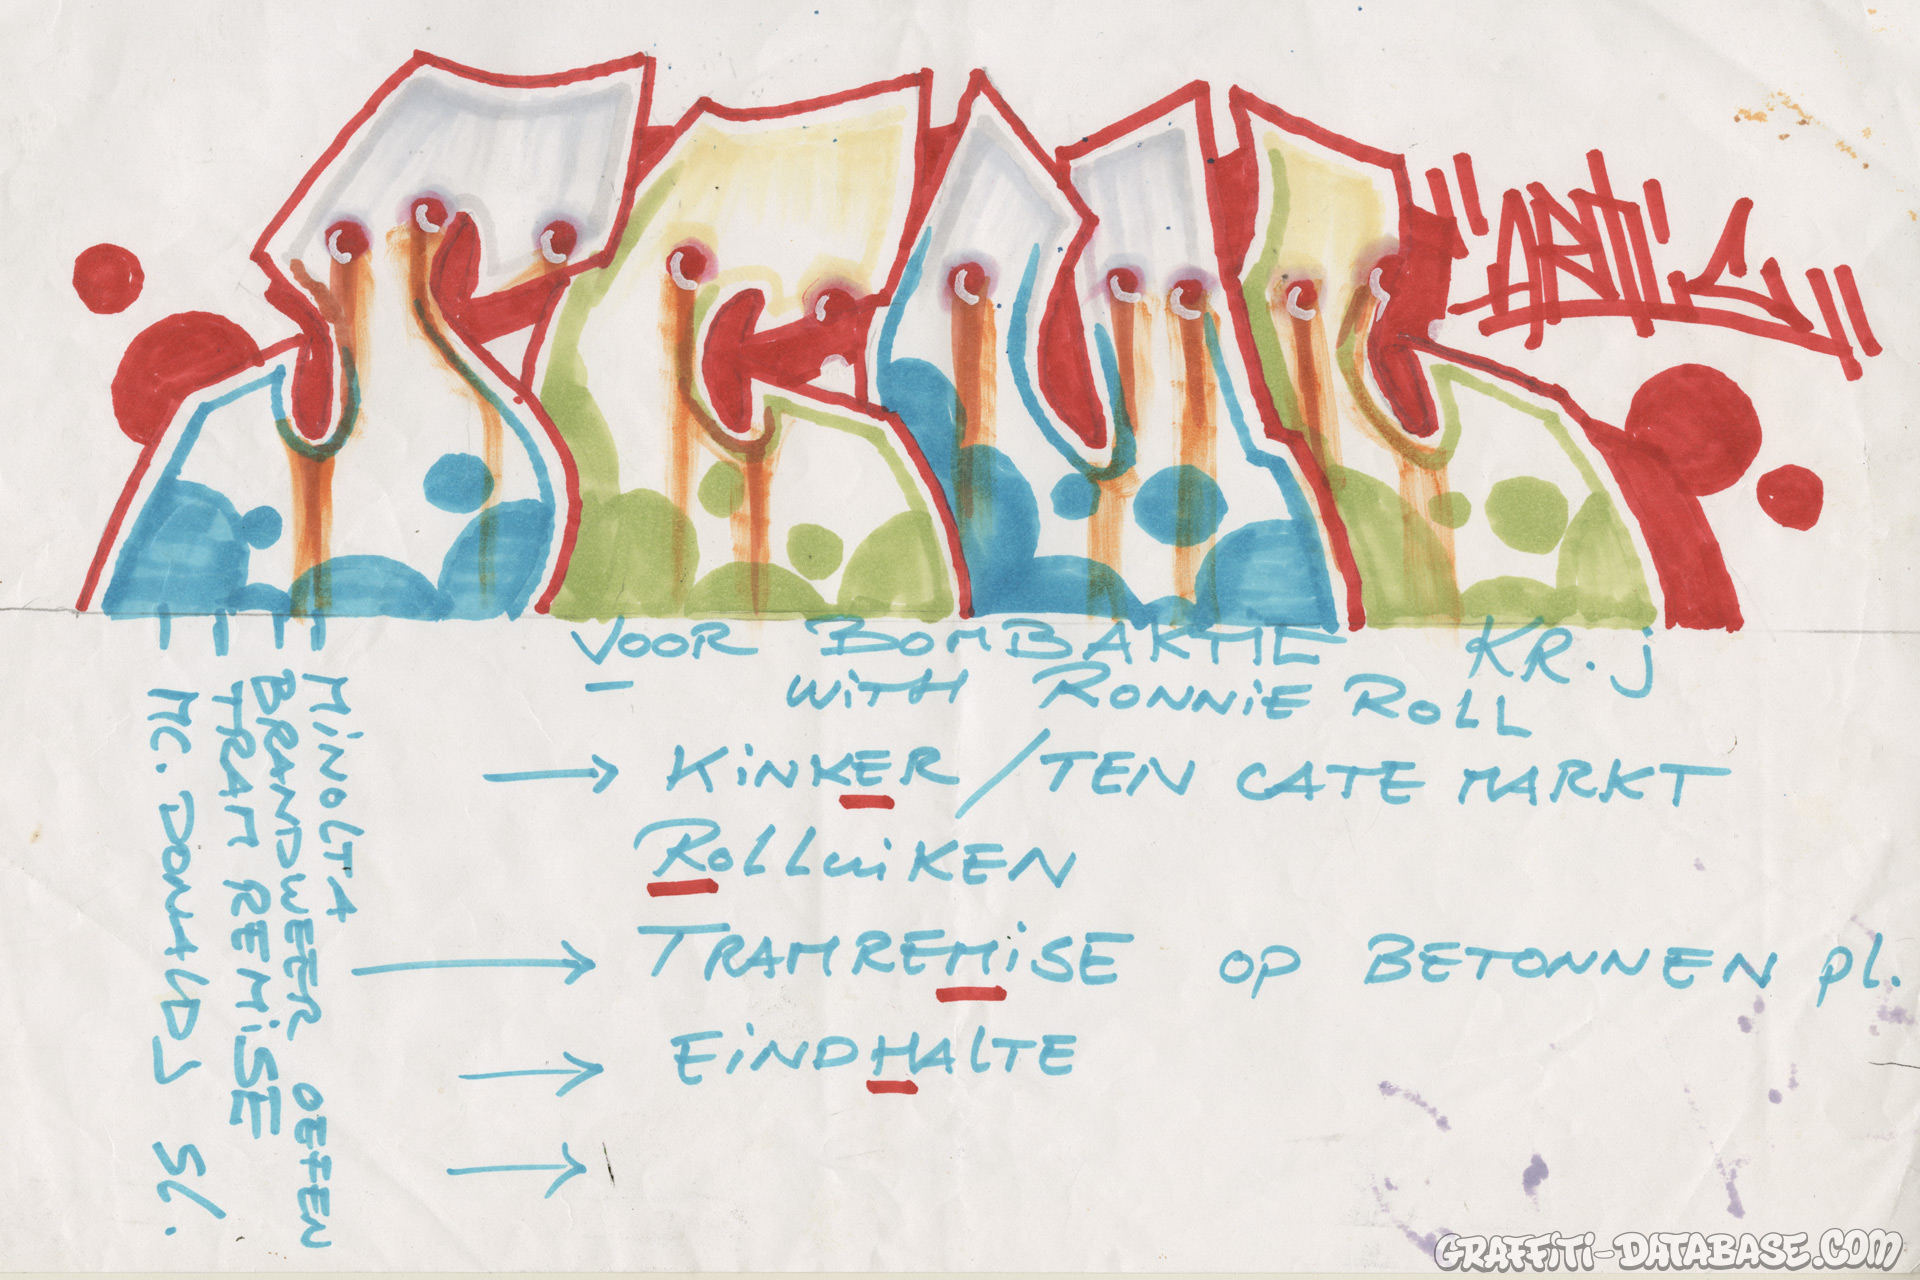 "ARTIS"
VOOR BOMBAKTIE KR.j
- WiTH RONNiE ROLL
→ KiNKER / TEN CATE MARKT
ROLLuiKEN
→ TRAMREMiSE OP BETONNEN pl.
→ EiNDHALTE
→
- MiNOLTA
- BRANDWEER OEFEN
- TRAM REMiSE
- MC. DONALDS Sl.
GRAFFITI-DATABASE.COM